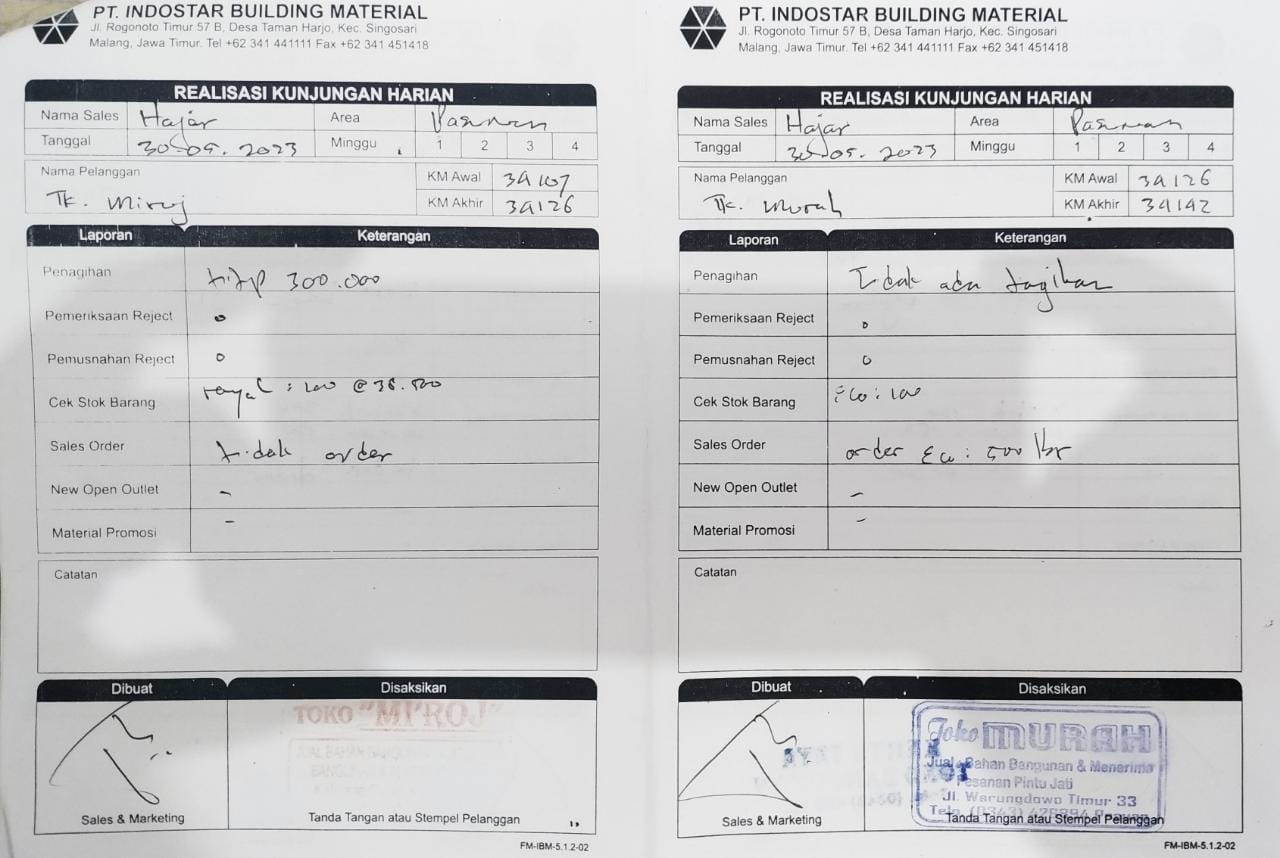 PT. INDOSTAR BUILDING MATERIAL
Jl. Rogonoto Timur 57 B, Desa Taman Harjo, Kec. Singosari
Malang, Jawa Timur. Tel +62 341 441111 Fax +62 341 451418
REALISASI KUNJUNGAN HARIAN
Nama Sales Hajar Area
Tanggal 30-05. 2023 Minggu 1 2 3 4
Nama Pelanggan KM Awal 39107
Tk. Miroj KM Akhir 39126
Laporan Keterangan
Penagihan titip 300.000
Pemeriksaan Reject 0
Pemusnahan Reject 0
Cek Stok Barang royal : 100 @ 38.500
Sales Order tidak order
New Open Outlet -
Material Promosi -
Catatan
Dibuat Disaksikan
TOKO "MI'ROJ"
JUAL BAHAN BANGUNAN
Sales & Marketing Tanda Tangan atau Stempel Pelanggan
FM-IBM-5.1.2-02
PT. INDOSTAR BUILDING MATERIAL
Jl. Rogonoto Timur 57 B, Desa Taman Harjo, Kec. Singosari
Malang, Jawa Timur. Tel +62 341 441111 Fax +62 341 451418
REALISASI KUNJUNGAN HARIAN
Nama Sales Hajar Area
Tanggal 30-05. 2023 Minggu 1 2 3 4
Nama Pelanggan KM Awal 39126
Tk. Murah KM Akhir 39142
Laporan Keterangan
Penagihan Tidak ada tagihan
Pemeriksaan Reject 0
Pemusnahan Reject 0
Cek Stok Barang : 100
Sales Order order Eco : 500 lbr
New Open Outlet -
Material Promosi -
Catatan
Dibuat Disaksikan
Toko MURAH
Jual : Bahan Bangunan & Menerima
Pesanan Pintu Jati
Jl. Warungdowo Timur 33
Telp. (0343)
Sales & Marketing Tanda Tangan atau Stempel Pelanggan
FM-IBM-5.1.2-02